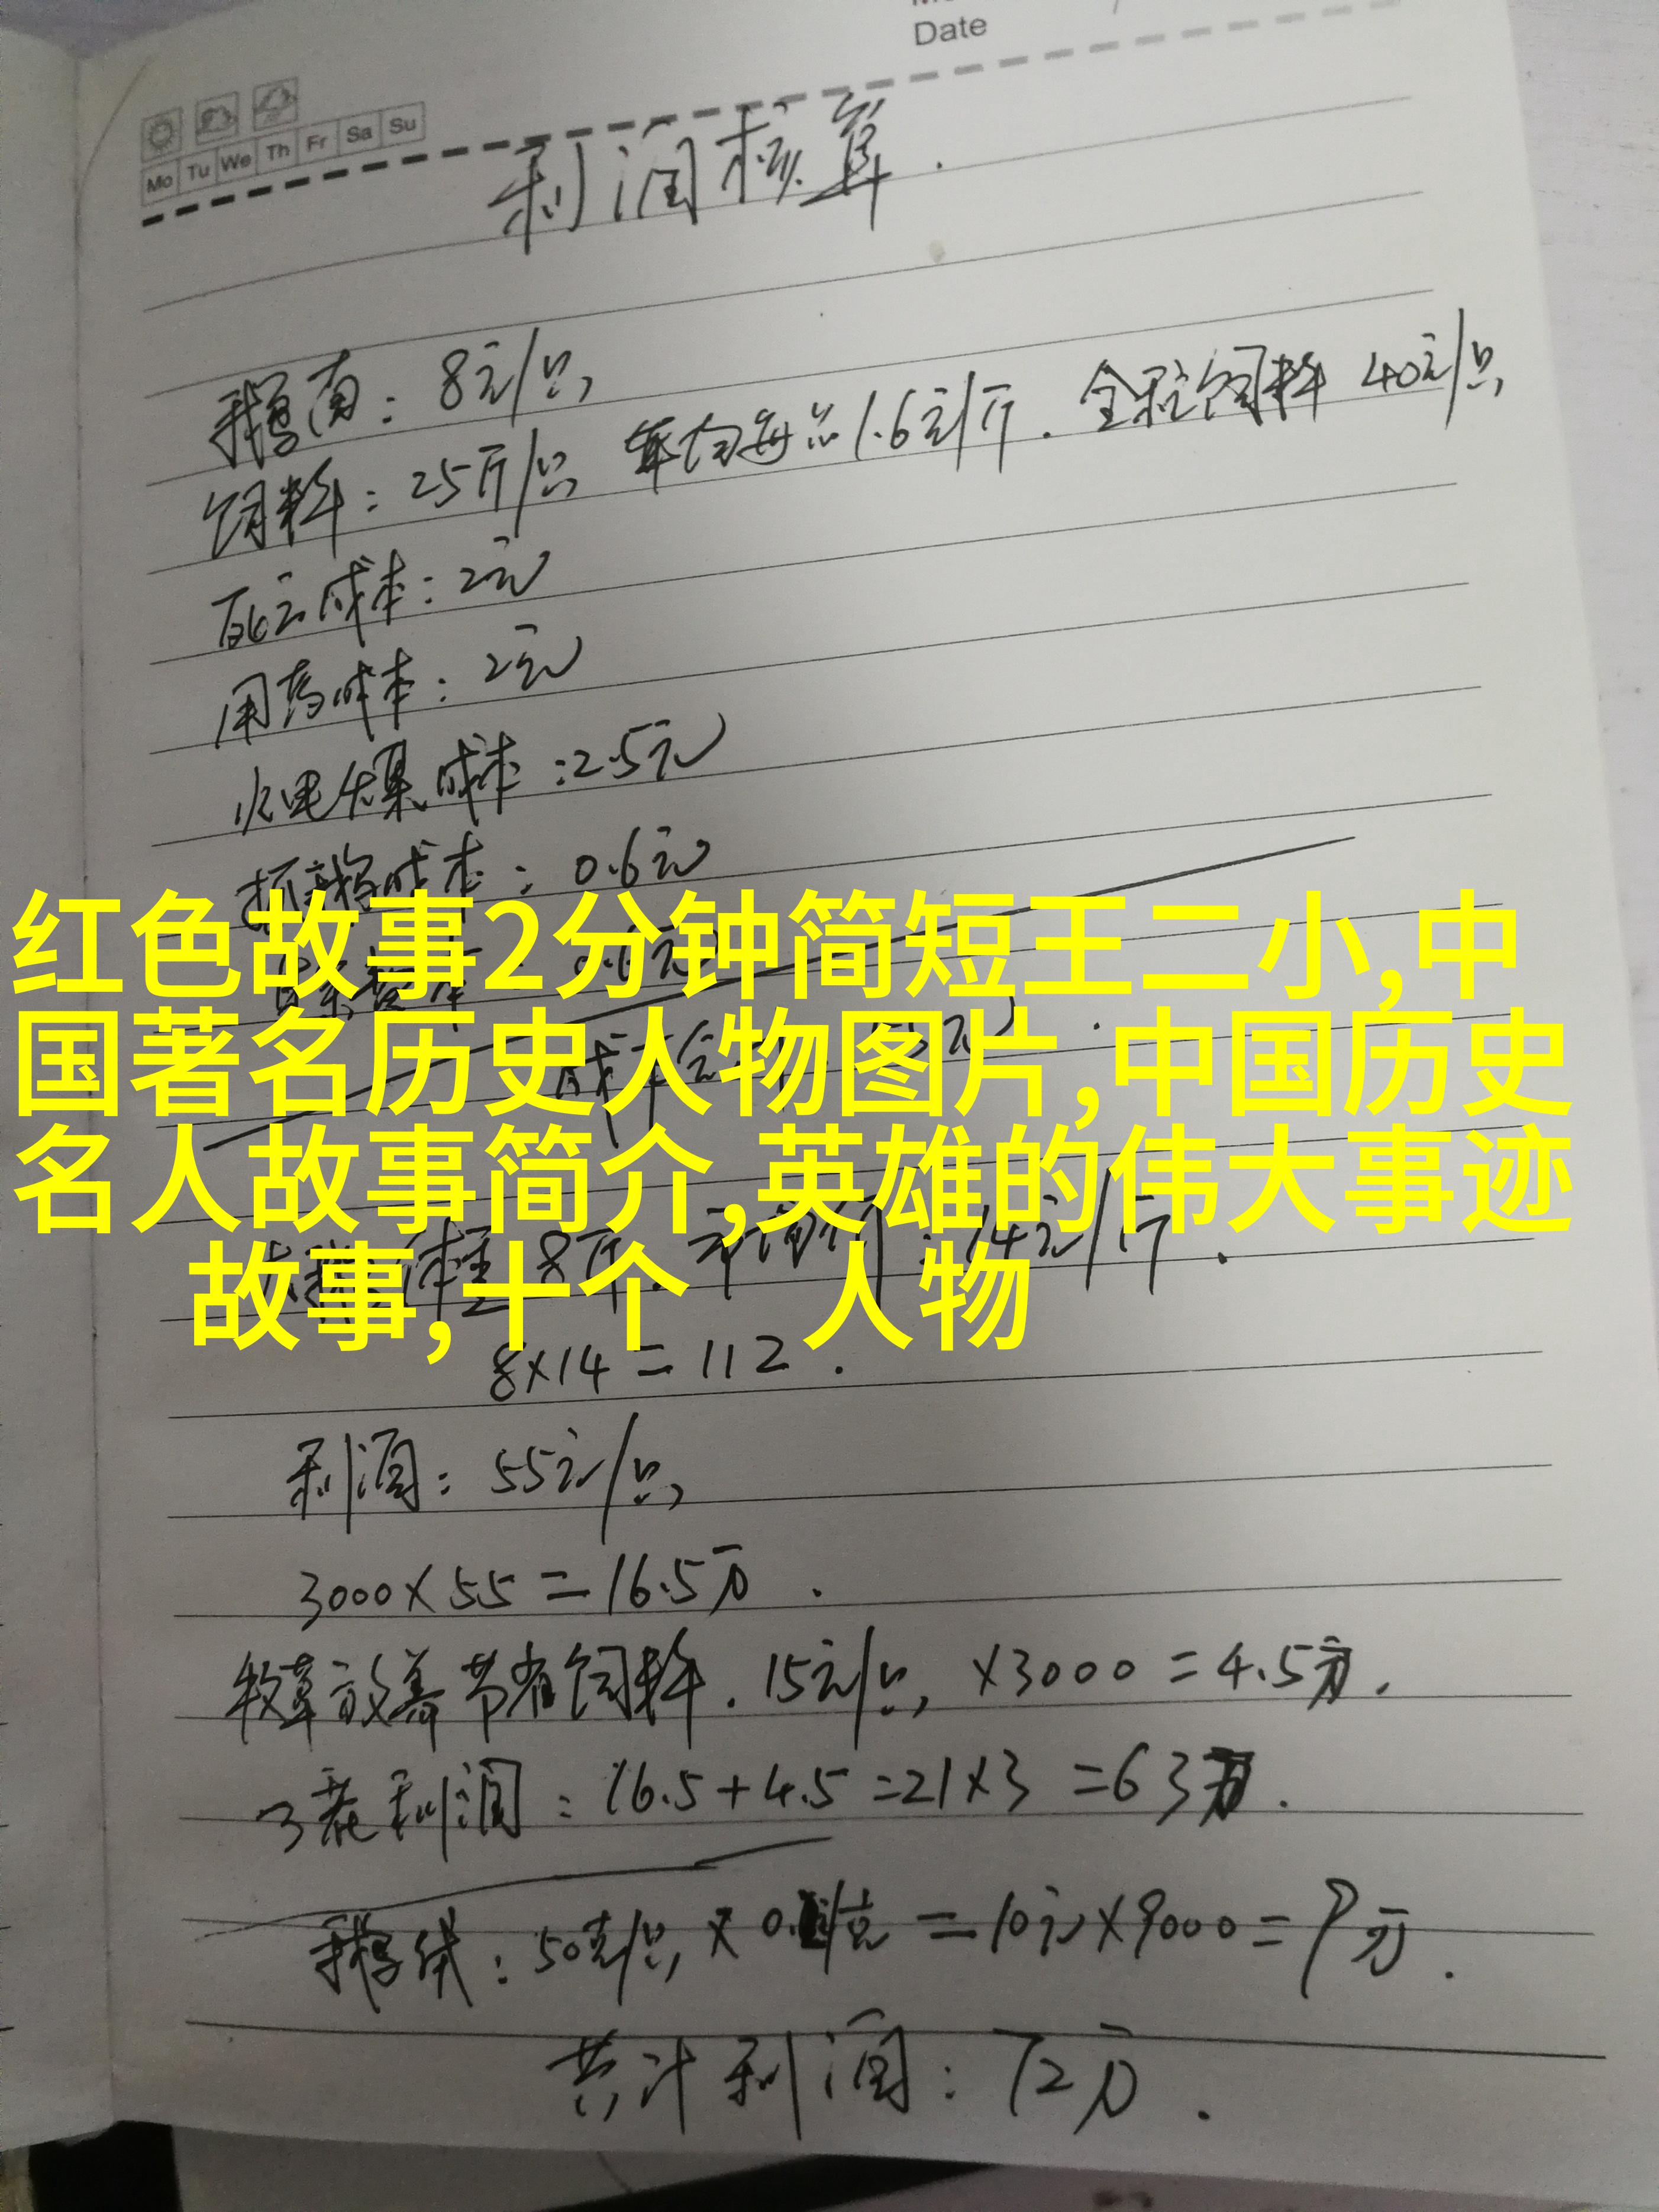 Date
Mo Tu We Th Fr Sa Su
利润核算.
鹅苗：8元/只
饲料：25斤/只 平均每只1.6元/斤. 全程饲料 40元/只
死亡成本：2元
用药成本：2元
水电煤成本：2.5元
抓鹅成本：0.6元
红色故事2分钟简短王二小,中
国著名历史人物图片,中国历史
名人故事简介,英雄的伟大事迹
故事,十个 人物
8斤 14元/斤.
8×14=112.
利润：55元/只
3000×55=16.5万.
牧草放养节省饲料.15元/只,×3000=4.5万.
3茬利润：16.5+4.5=21×3=63万.
鹅绒：50克/只×0. /克=10元×9000=9万.
共计利润：72万.